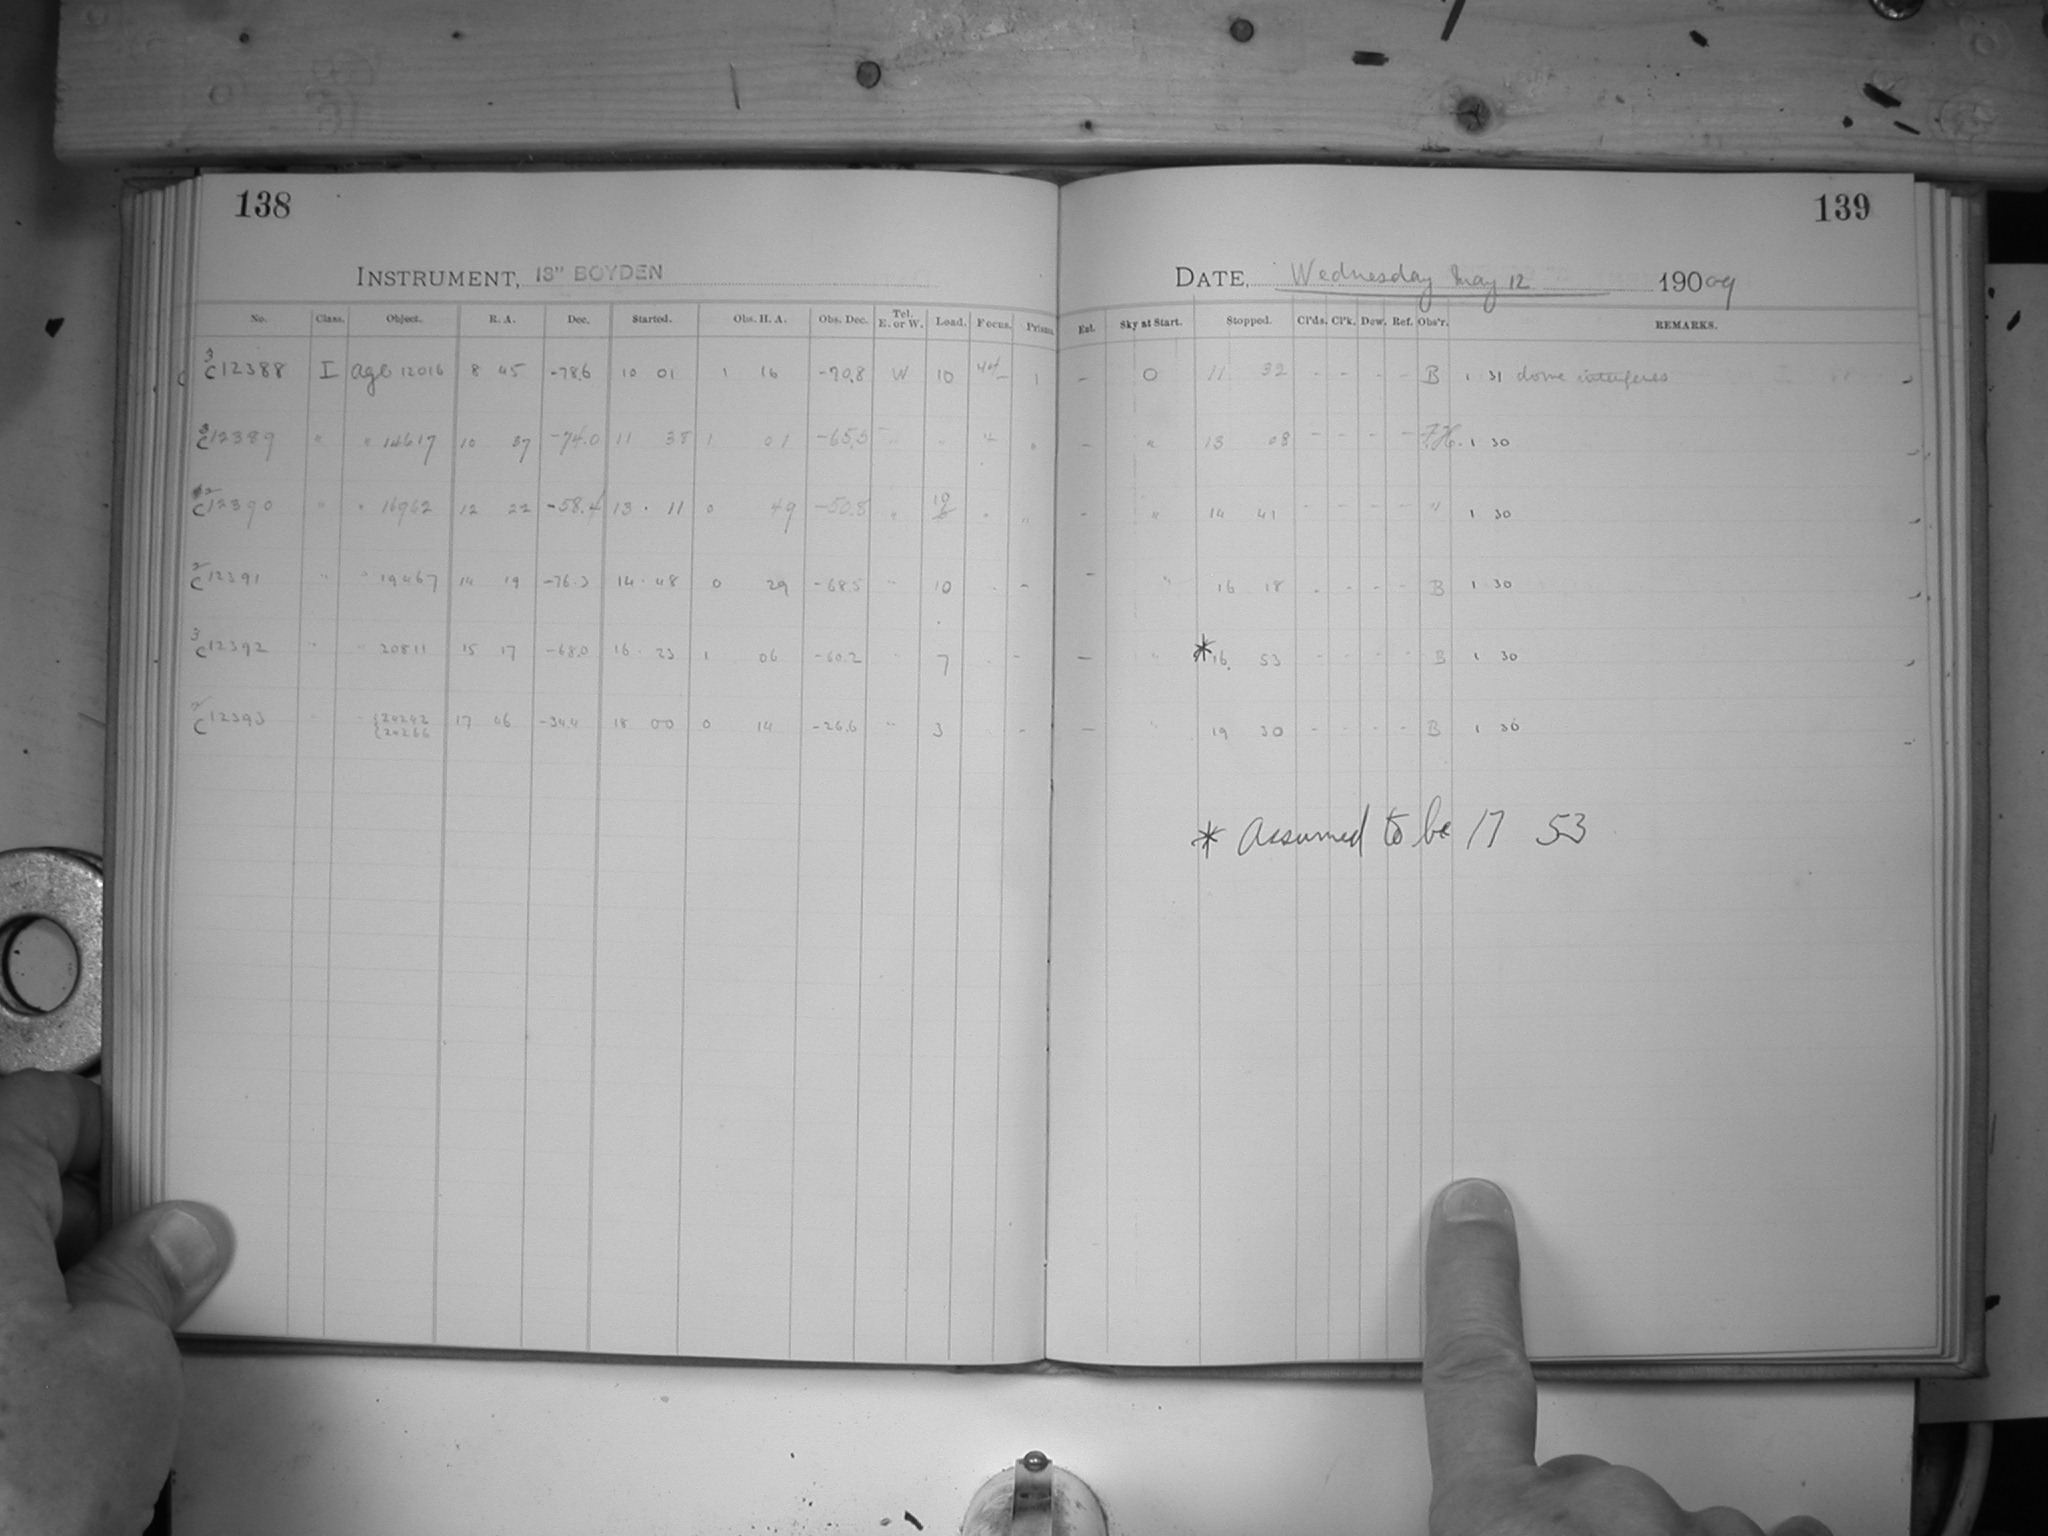 138
139
INSTRUMENT, 13" BOYDEN
DATE, Wednesday May 12 190 09
No. Class. Object. R. A. Dec. Started. Obs. H. A. Obs. Dec. Tel. E. or W. Load. Focus. Prisms. Est. Sky at Start. Stopped. Cl'ds. Cl'k. Dew. Ref. Obs'r. REMARKS.
3 C12388 I age 12016 8 45 -78.6 10 01 1 16 -70.8 W 10 1 - 0 11 32 - - - - B 1 31 dome interferes
3 C12389 " " 14617 10 37 -74.0 11 38 1 01 -65.5 " - " 13 08 - - - - 1 30
C12390 " " 16962 12 22 -58.4 13 11 0 49 -50.8 " 10 " " - " 14 41 - - - - " 1 30
2 C12391 " " 19467 14 19 -76.3 14 48 0 29 -68.5 " 10 - - " 16 18 - - - - B 1 30
3 C12392 " " 20811 15 17 -68.0 16 23 1 06 -60.2 " 7 - - " * 16 53 - - - - B 1 30
2 C12393 " { 17 46 -34.4 18 00 0 14 -26.6 " 3 - - " 19 30 - - - - B 1 30
* Assumed to be 17 53